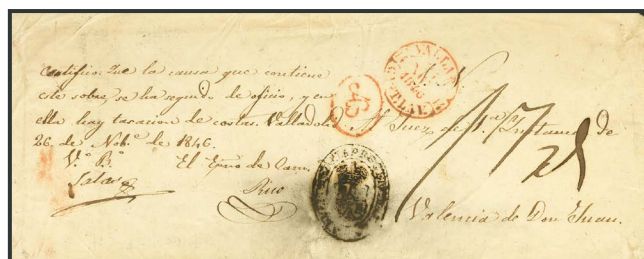 Certifico: Que la causa que contiene
este sobre, se ha seguido de oficio, y en
ella hay tasacion de costas. Valladolid
26. de Nob.e de 1846.
V.o B.o El Essno de Cam.
Salas
Rico
Al Juez de 1.a Instancia de
Valencia de Don Juan.
VALLA
1846